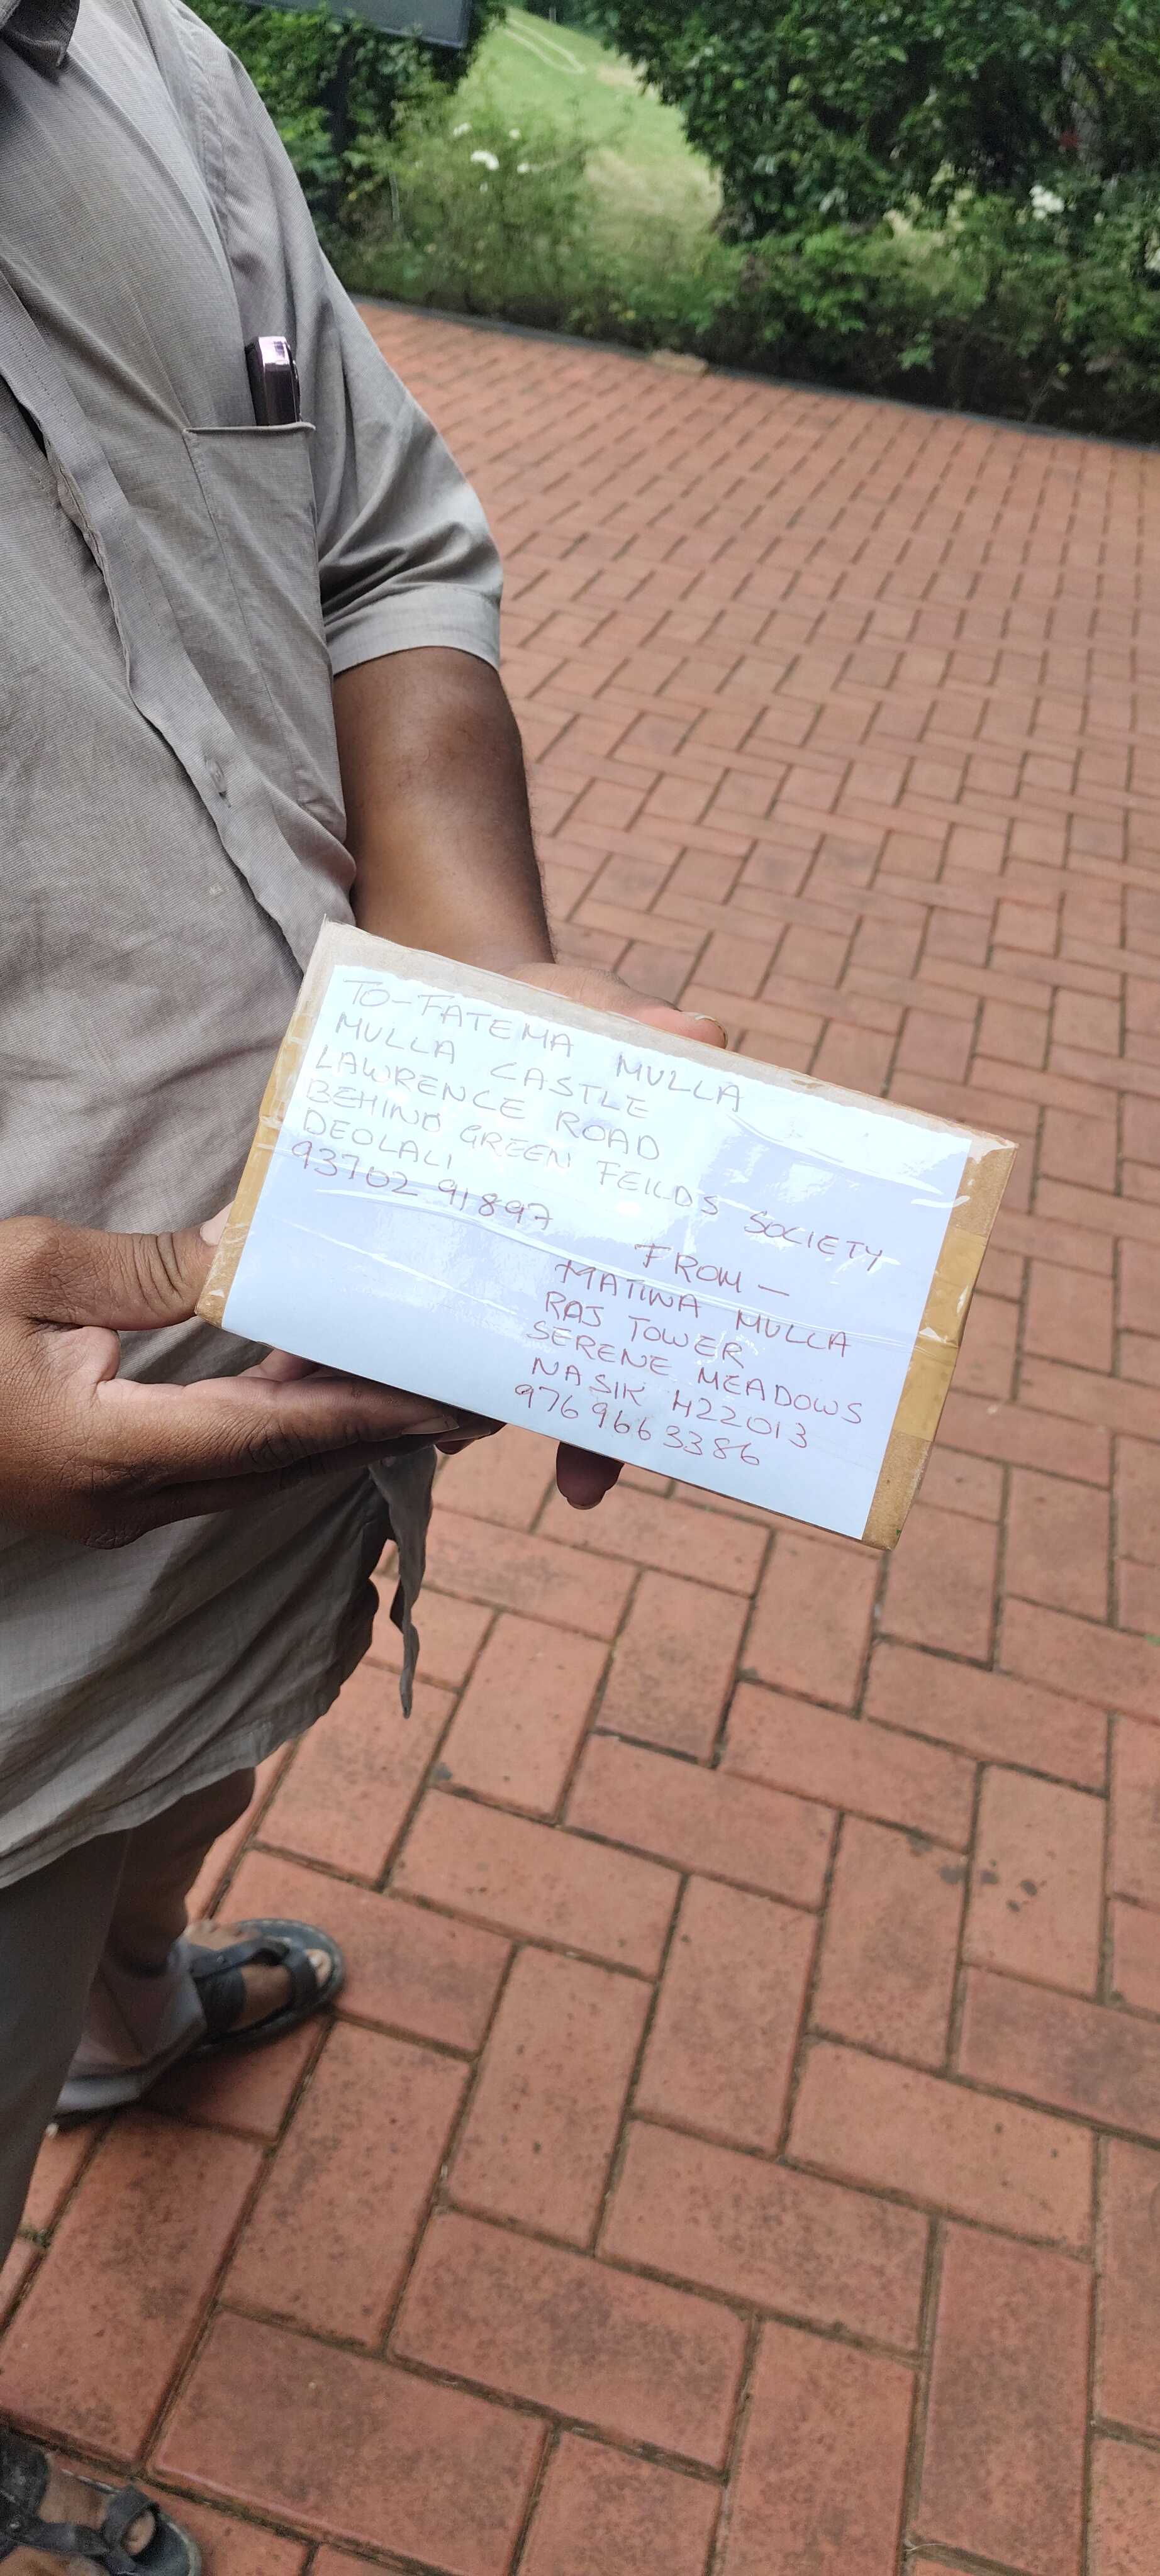 TO-FATEMA MULLA
MULLA CASTLE
LAWRENCE ROAD
BEHIND GREEN FEILDS SOCIETY
DEOLALI
93702 91897
FROM-
MATINA MULLA
RAJ TOWER
SERENE MEADOWS
NASIK 422013
9769663386